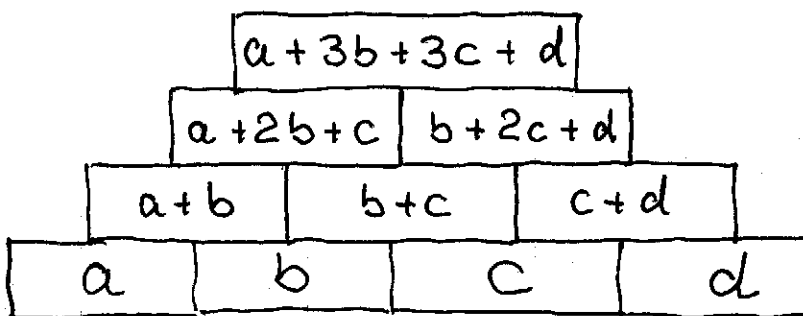 a + 3b + 3c + d
a + 2b + c b + 2c + d
a + b b + c c + d
a b c d